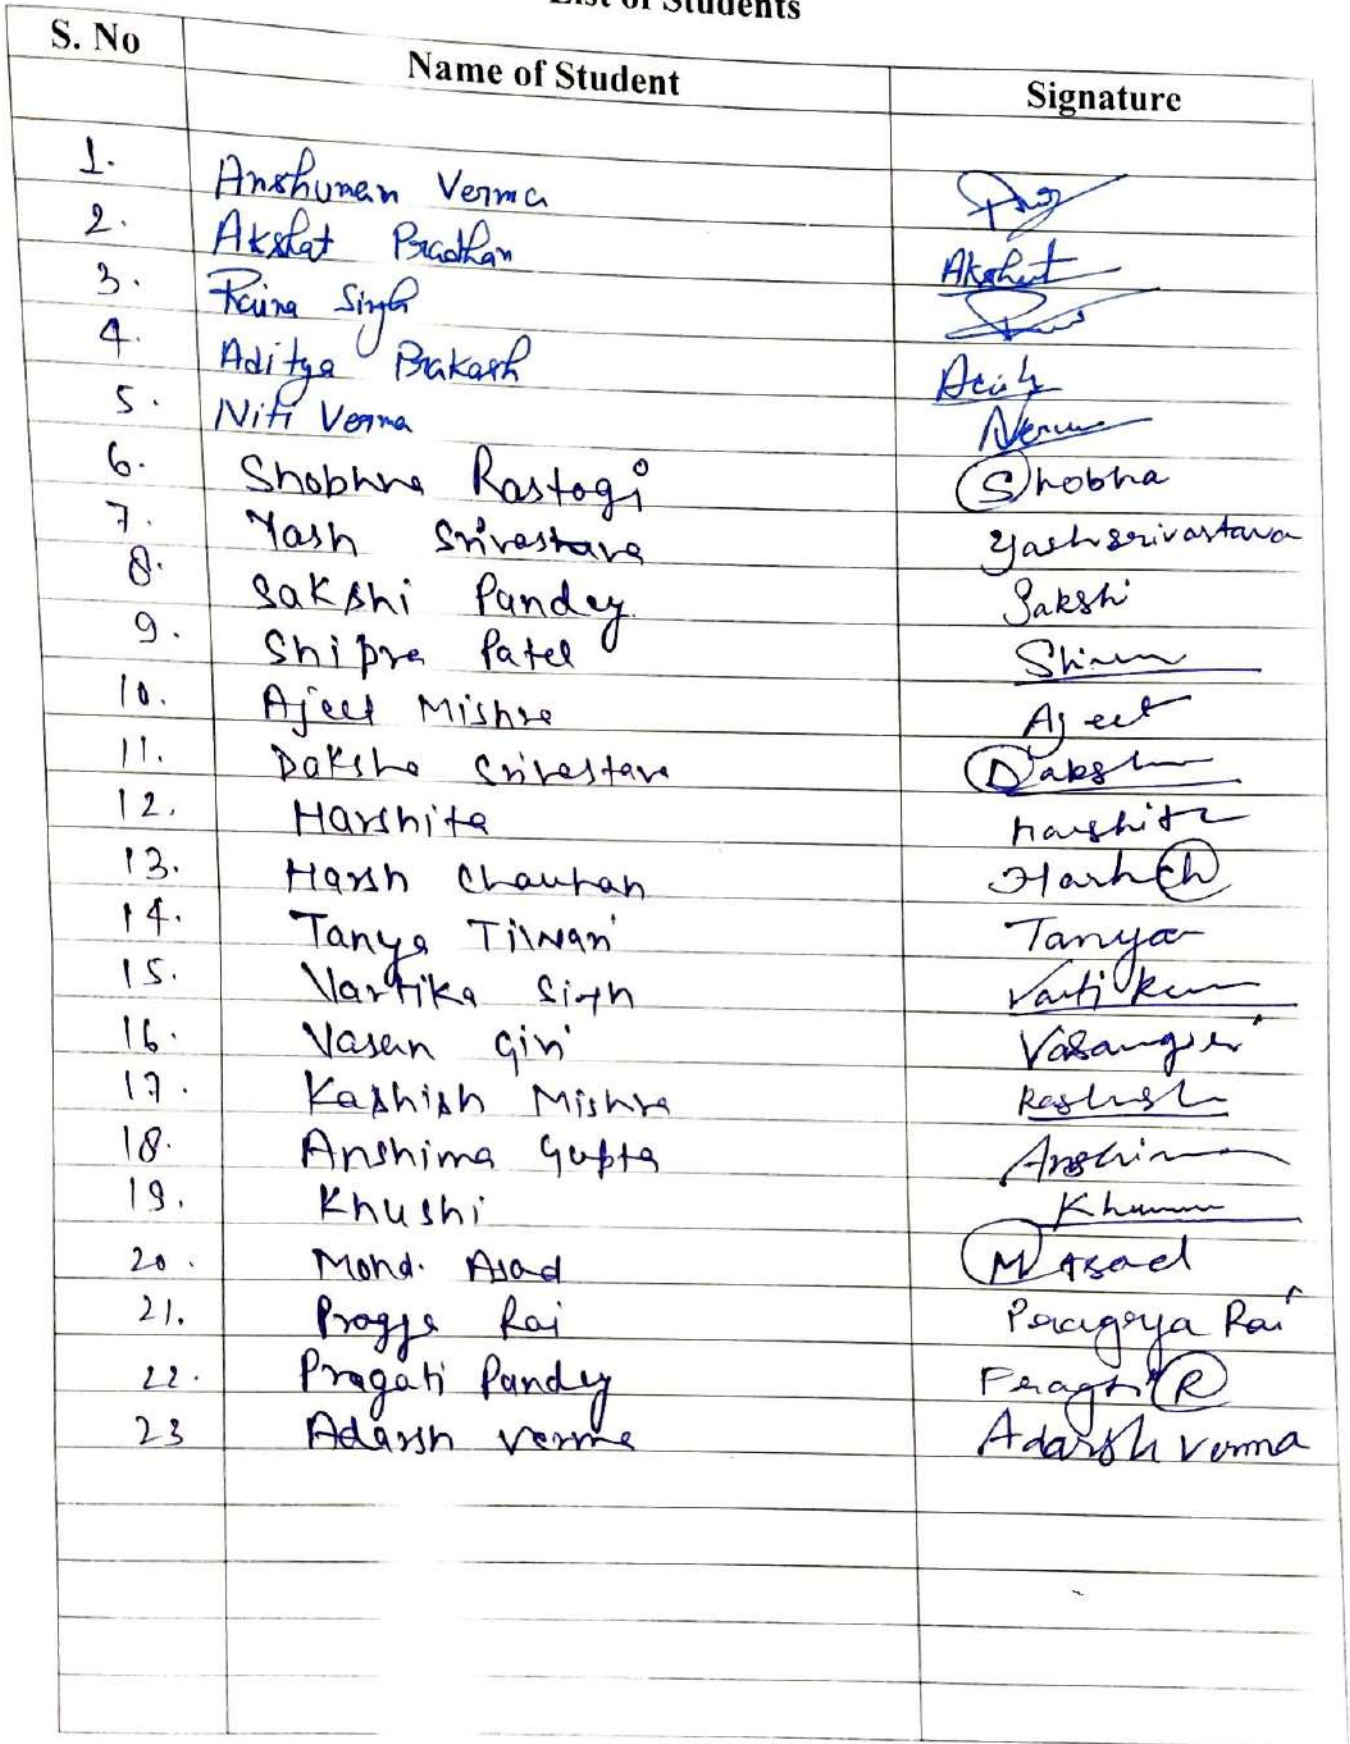 List of Students
S. No Name of Student Signature
1. Anshuman Verma
2. Akshat Pradhan Akshat
3. Raina Singh
4. Aditya Prakash
5. Niti Verma
6. Shobhna Rastogi Shobha
7. Yash Srivastava Yash srivastava
8. Sakshi Pandey Sakshi
9. Shipra Patel
10. Ajeet Mishra Ajeet
11. Daksha Srivastava Daksh
12. Harshita Harshita
13. Harsh Chauhan Harsh Ch
14. Tanya Tiwari Tanya
15. Vartika Singh Vartika
16. Vasan Giri Vasangiri
17. Kashish Mishra Kashish
18. Anshima Gupta Anshima
19. Khushi
20. Mohd. Asad M Asad
21. Pragya Rai Pragya Rai
22. Pragati Pandey Pragti R
23 Adarsh Verma Adarsh Verma